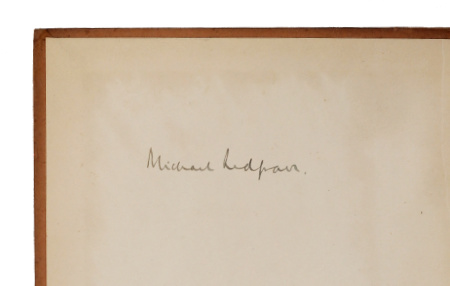 Michael Redgrave.